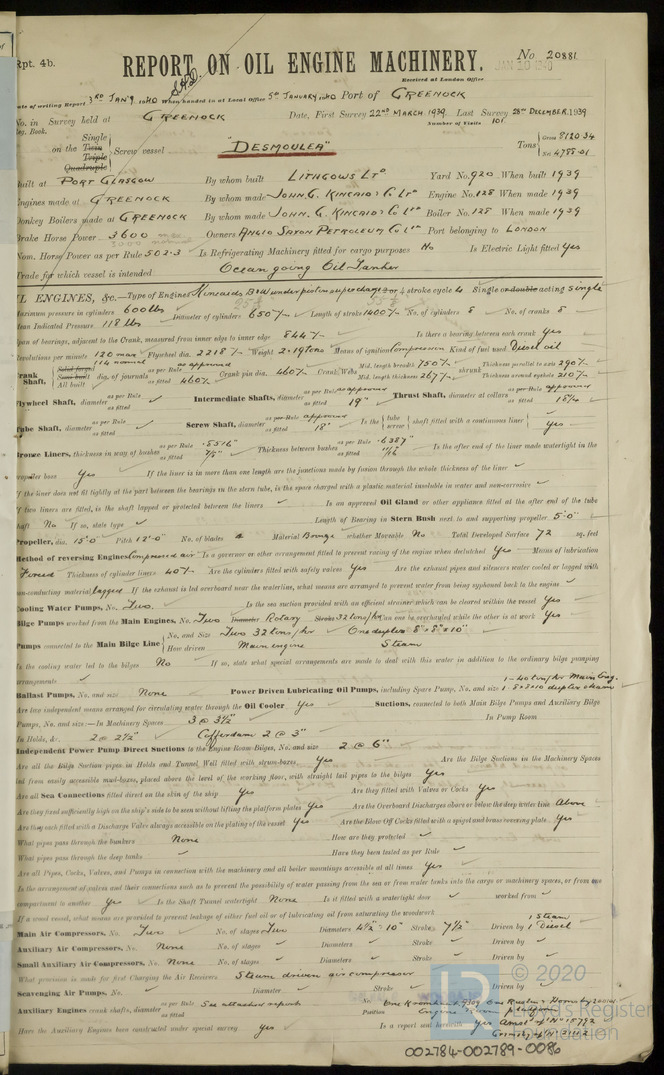 Rpt. 4b.
REPORT ON OIL ENGINE MACHINERY.
No. 20881
Received at London Office
Date of writing Report 3RD JAN'Y 1940 When handed in at Local Office 5th JANUARY 1940 Port of GREENOCK
No. in Survey held at GREENOCK Date, First Survey 22ND MARCH 1939 Last Survey 28th DECEMBER 1939
Reg. Book. Number of Visits 101
Single
on the Twin Triple Quadruple Screw vessel "DESMOULEA" Tons Gross 8120.34 Net 4788.01
Built at PORT GLASGOW By whom built LITHGOWS LTD Yard No. 920 When built 1939
Engines made at GREENOCK By whom made JOHN G. KINCAID & Co LTD Engine No. 128 When made 1939
Donkey Boilers made at GREENOCK By whom made JOHN G. KINCAID & Co LTD Boiler No. 128 When made 1939
Brake Horse Power 3600 Owners ANGLO SAXON PETROLEUM Co LTD Port belonging to LONDON
Nom. Horse Power as per Rule 502.3 Is Refrigerating Machinery fitted for cargo purposes No Is Electric Light fitted Yes
Trade for which vessel is intended Ocean going Oil Tanker
OIL ENGINES, &c.—Type of Engines Kincaids B&W underpiston supercharge 2 or 4 stroke cycle 4 Single or double acting Single
Maximum pressure in cylinders 600 lbs Diameter of cylinders 650 m/m Length of stroke 1400 m/m No. of cylinders 8 No. of cranks 8
Mean Indicated Pressure 118 lbs
Span of bearings, adjacent to the Crank, measured from inner edge to inner edge 844 m/m Is there a bearing between each crank Yes
Revolutions per minute 120 max 114 normal Flywheel dia. 2218 m/m Weight 2.19 tons Means of ignition Compression Kind of fuel used Diesel oil
Crank Shaft, Solid forged Semi built All built dia. of journals as per Rule as approved as fitted 460 m/m Crank pin dia. 460 m/m Crank Webs Mid. length breadth 750 m/m Mid. length thickness 267 m/m shrunk Thickness parallel to axis 290 m/m Thickness around eyehole 210 m/m
Flywheel Shaft, diameter as per Rule as fitted Intermediate Shafts, diameter as per Rule as approved as fitted 19" Thrust Shaft, diameter at collars as per Rule approved as fitted 18 1/4
Tube Shaft, diameter as per Rule as fitted Screw Shaft, diameter as per Rule approved as fitted 18" Is the tube screw shaft fitted with a continuous liner Yes
Bronze Liners, thickness in way of bushes as per Rule .8516" as fitted 7/8" Thickness between bushes as per Rule .6387" as fitted 11/16 Is the after end of the liner made watertight in the
propeller boss Yes If the liner is in more than one length are the junctions made by fusion through the whole thickness of the liner
If the liner does not fit tightly at the part between the bearings in the stern tube, is the space charged with a plastic material insoluble in water and non-corrosive
If two liners are fitted, is the shaft lapped or protected between the liners Is an approved Oil Gland or other appliance fitted at the after end of the tube
shaft No If so, state type Length of Bearing in Stern Bush next to and supporting propeller 5'0"
Propeller, dia. 15'0 Pitch 12'0" No. of blades 4 Material Bronze whether Moveable No Total Developed Surface 72 sq. feet
Method of reversing Engines Compressed air Is a governor or other arrangement fitted to prevent racing of the engine when declutched Yes Means of lubrication
Forced Thickness of cylinder liners 40 m/m Are the cylinders fitted with safety valves Yes Are the exhaust pipes and silencers water cooled or lagged with
non-conducting material lagged If the exhaust is led overboard near the waterline, what means are arranged to prevent water from being syphoned back to the engine
Cooling Water Pumps, No. Two. Is the sea suction provided with an efficient strainer which can be cleared within the vessel Yes
Bilge Pumps worked from the Main Engines, No. Two Diameter Rotary Stroke 32 tons/hr Can one be overhauled while the other is at work Yes
Pumps connected to the Main Bilge Line No. and Size Two 32 tons/hr One duplex 8" x 8" x 10"
How driven Main engine Steam
Is the cooling water led to the bilges No If so, state what special arrangements are made to deal with this water in addition to the ordinary bilge pumping
arrangements
Ballast Pumps, No. and size None Power Driven Lubricating Oil Pumps, including Spare Pump, No. and size 1 - 40 ton/hr Main Eng. 1 - 8x8x10 duplex steam
Are two independent means arranged for circulating water through the Oil Cooler Yes Suctions, connected to both Main Bilge Pumps and Auxiliary Bilge
Pumps, No. and size:—In Machinery Spaces 3 @ 3½" In Pump Room
In Holds, &c. 2 @ 2½" Cofferdam 2 @ 3"
Independent Power Pump Direct Suctions to the Engine Room Bilges, No. and size 2 @ 6"
Are all the Bilge Suction pipes in Holds and Tunnel Well fitted with strum-boxes Yes Are the Bilge Suctions in the Machinery Spaces
led from easily accessible mud-boxes, placed above the level of the working floor, with straight tail pipes to the bilges Yes
Are all Sea Connections fitted direct on the skin of the ship Yes Are they fitted with Valves or Cocks Yes
Are they fixed sufficiently high on the ship's side to be seen without lifting the platform plates Yes Are the Overboard Discharges above or below the deep water line Above
Are they each fitted with a Discharge Valve always accessible on the plating of the vessel Yes Are the Blow Off Cocks fitted with a spigot and brass covering plate Yes
What pipes pass through the bunkers None How are they protected
What pipes pass through the deep tanks Have they been tested as per Rule
Are all Pipes, Cocks, Valves, and Pumps in connection with the machinery and all boiler mountings accessible at all times Yes
Is the arrangement of valves and their connections such as to prevent the possibility of water passing from the sea or from water tanks into the cargo or machinery spaces, or from one
compartment to another Yes Is the Shaft Tunnel watertight None Is it fitted with a watertight door worked from
If a wood vessel, what means are provided to prevent leakage of either fuel oil or of lubricating oil from saturating the woodwork
Main Air Compressors, No. Two No. of stages Two Diameters 4½" - 10" Stroke 7½" Driven by 1 Steam 1 Diesel
Auxiliary Air Compressors, No. None No. of stages Diameters Stroke Driven by
Small Auxiliary Air Compressors, No. None No. of stages Diameters Stroke Driven by
What provision is made for first Charging the Air Receivers Steam driven air compressor
Scavenging Air Pumps, No. Diameter Stroke Driven by
Auxiliary Engines crank shafts, diameter as per Rule as fitted See attached reports No. Position
Have the Auxiliary Engines been constructed under special survey Yes Is a report sent herewith Yes
© 2020
Lloyd's Register
Foundation
002784-002789-0086